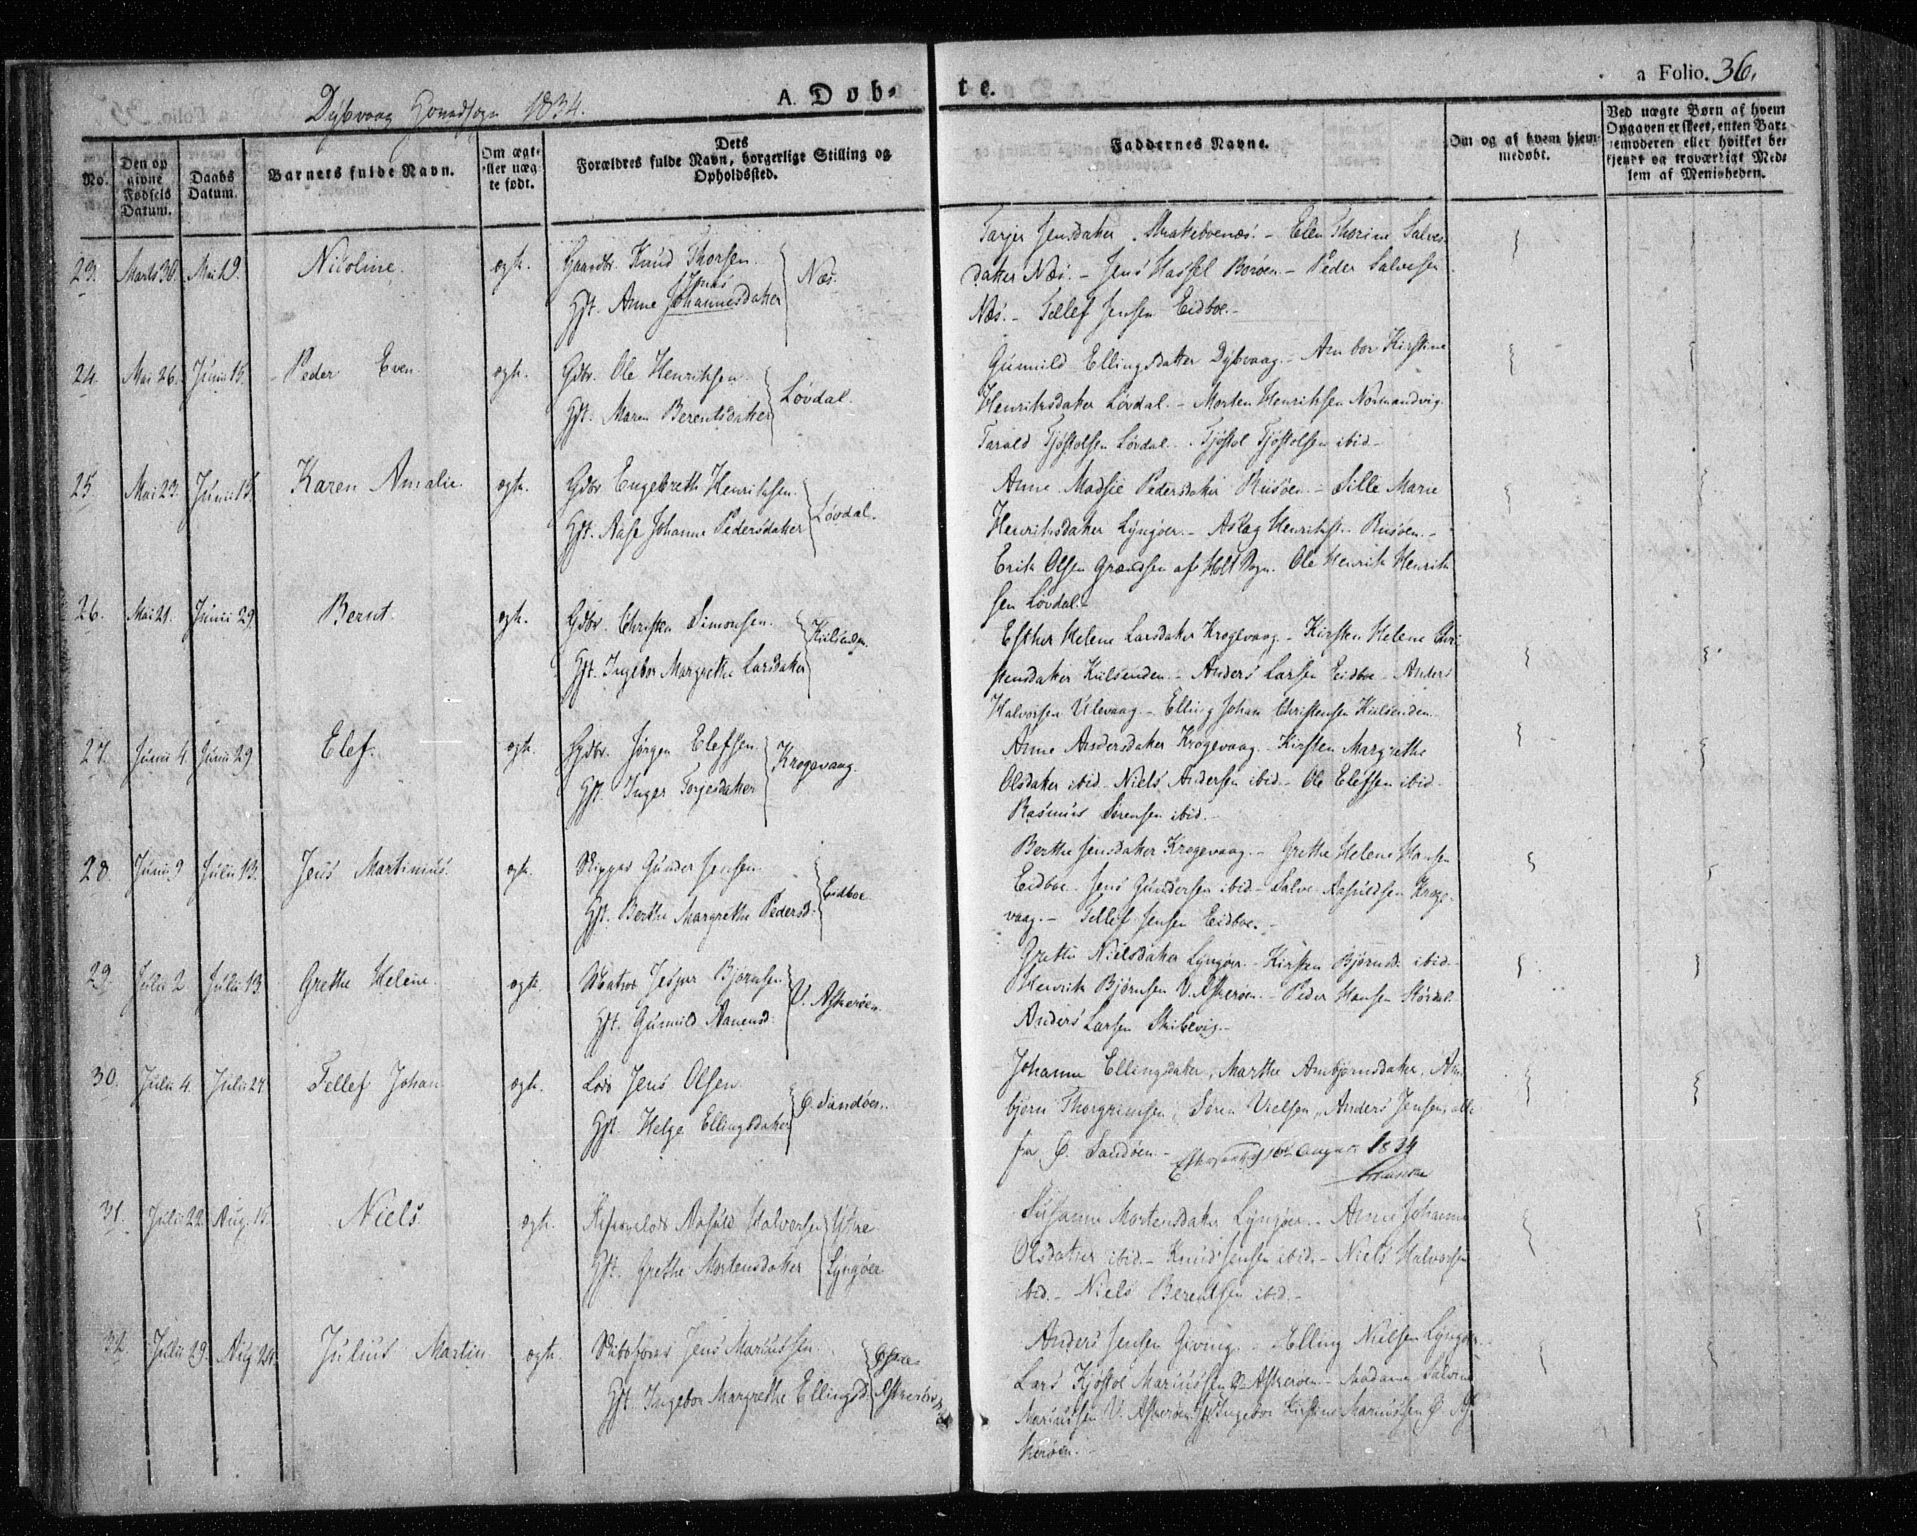 Dybvaag Hovedsogn 1834.
A. Døb-
te.
a Folio. 36.
No.
Den op
givne
Fødsels
Datum.
Daabs
Datum.
Barnets fulde Navn.
Om ægte
eller uæg
te født.
Dets
Forældres fulde Navn, borgerlige Stilling og
Opholdssted.
Faddernes Navne.
Om og af hvem hjem-
medøbt.
Ved uægte Børn af hvem
Opgaven er skeet, enten Bar-
nemoderen eller hvilket be
kjendt og troværdigt Med
lem af Menigheden.
23. Marts 30. Mai 19. Nicoline. ægte.
Gaardbr. Knud Thorsen
Jens
Hst. Anne Johannesdatter
Næs.
Tarjer Jensdatter - Elen Thorine Salves-
datter Næs. - Jens Hassel Borøen - Peder Salvesen
Næs. - Tellef Jensen Eidboe. -
24. Mai 26. Junii 15. Peder Even. ægte.
Gdbr. Ole Henriksen.
Hst. Maren Berentsdatter
Løvdal.
Gunnild Ellingsdatter Dybvaag. - Anbor Kirstine
Henriksdatter Løvdal. - Morten Henriksen Normandvig.
Tarald Tjøstolsen Løvdal. - Tjøstol Tjøstolsen ibid -
25. Mai 23. Junii 15. Karen Amalie. ægte.
Gdbr. Engebreth Henriksen.
Hst. Aase Johanne Pedersdatter
Løvdal.
Anne Madsie Pedersdatter Risøen. - Sille Marie
Henriksdatter Lyngøer. - Aslag Henriks. Risøen. -
Erik Olsen Grændsen af Holt Sogn. Ole Henrik Henrik
sen Løvdal. -
26. Mai 21. Junii 29. Bernt. ægte.
Gdbr. Christen Simonsen.
Hst. Ingebor Margrethe Larsdatter
Kiilsenden.
Esther Helene Larsdatter Krogevaag - Kirsten Helene Chri-
stensdatter Kiilsenden. - Anders Larsen Eidboe - Anders
Halvorsen Ulevaag. - Elling Johan Christensen Kiilsenden.
27. Junii 4. Junii 29 Elef. ægte.
Gdbr. Jørgen Elefsen
Hst. Inger Terjesdatter
Krogevaag.
Anne Andersdatter Krogevaag. - Kirsten Margrethe
Olsdatter ibid - Niels Andersen ibid. - Ole Elefsen ibid -
Rasmus Sørensen ibid. -
28. Junii 9 Julii 13. Jens Martinius. ægte.
Gunder Jensen
Hst. Berthe Margrethe Pedersd.
Eidboe
Berthe Jensdatter Krogevaag. - Grethe Helene Hansen
Eidboe. Jens Gundersen ibid - Salve Aasuldsen Kroge-
vaag. - Tellef Jensen Eidboe. -
29. Julii 2 Julii 13. Grethe Helene. ægte.
Matros Jesper Bjørnsen
Hst. Gunnild Aanensd.
V. Askerøen.
Grethe Nielsdatter Lyngøer. - Kirsten Bjørnsd. ibid -
Henrik Bjørnsen V. Askerøen. - Peder Hansen
Anders Larsen Skibevig. -
30. Julii 4. Julii 27. Tellef Johan ægte.
Lods Jens Olsen
Hst. Helge Ellingsdatter
Ø. Sandøen.
Johanne Ellingsdatter, Marthe Arnbjørnsdatter, Arn
bjørn Thorgrimsen, Søren Nielsen, Anders Jensen, alle
fra Ø. Sandøen. - 16de August 1834
31. Julii 22. Aug. 15. Niels. ægte.
Aasuld Halvorsen
Hst. Grethe Mortensdatter
Ydre
Lyngøer
Susanne Mortensdatter Lyngøer. - Anne Johanne
Olsdatter ibid - Knud Jensen ibid. - Niels Halvorsen
ibid. - Niels Berentsen ibid. -
32. Julii 29. Aug 24. Julius Martin ægte.
Jens Mariussen
Hst. Ingebor Margrethe Ellingsd.
Østre
Askerøen
Anders Jensen Geving. - Elling Nielsen Lyngøer
Lars Kjøstol Mariussen Ø. Askerøen. - Madame Salvine
Mariussen V. Askerøen. Ingebor Kirstine Mariussen Ø. As
kerøen. -